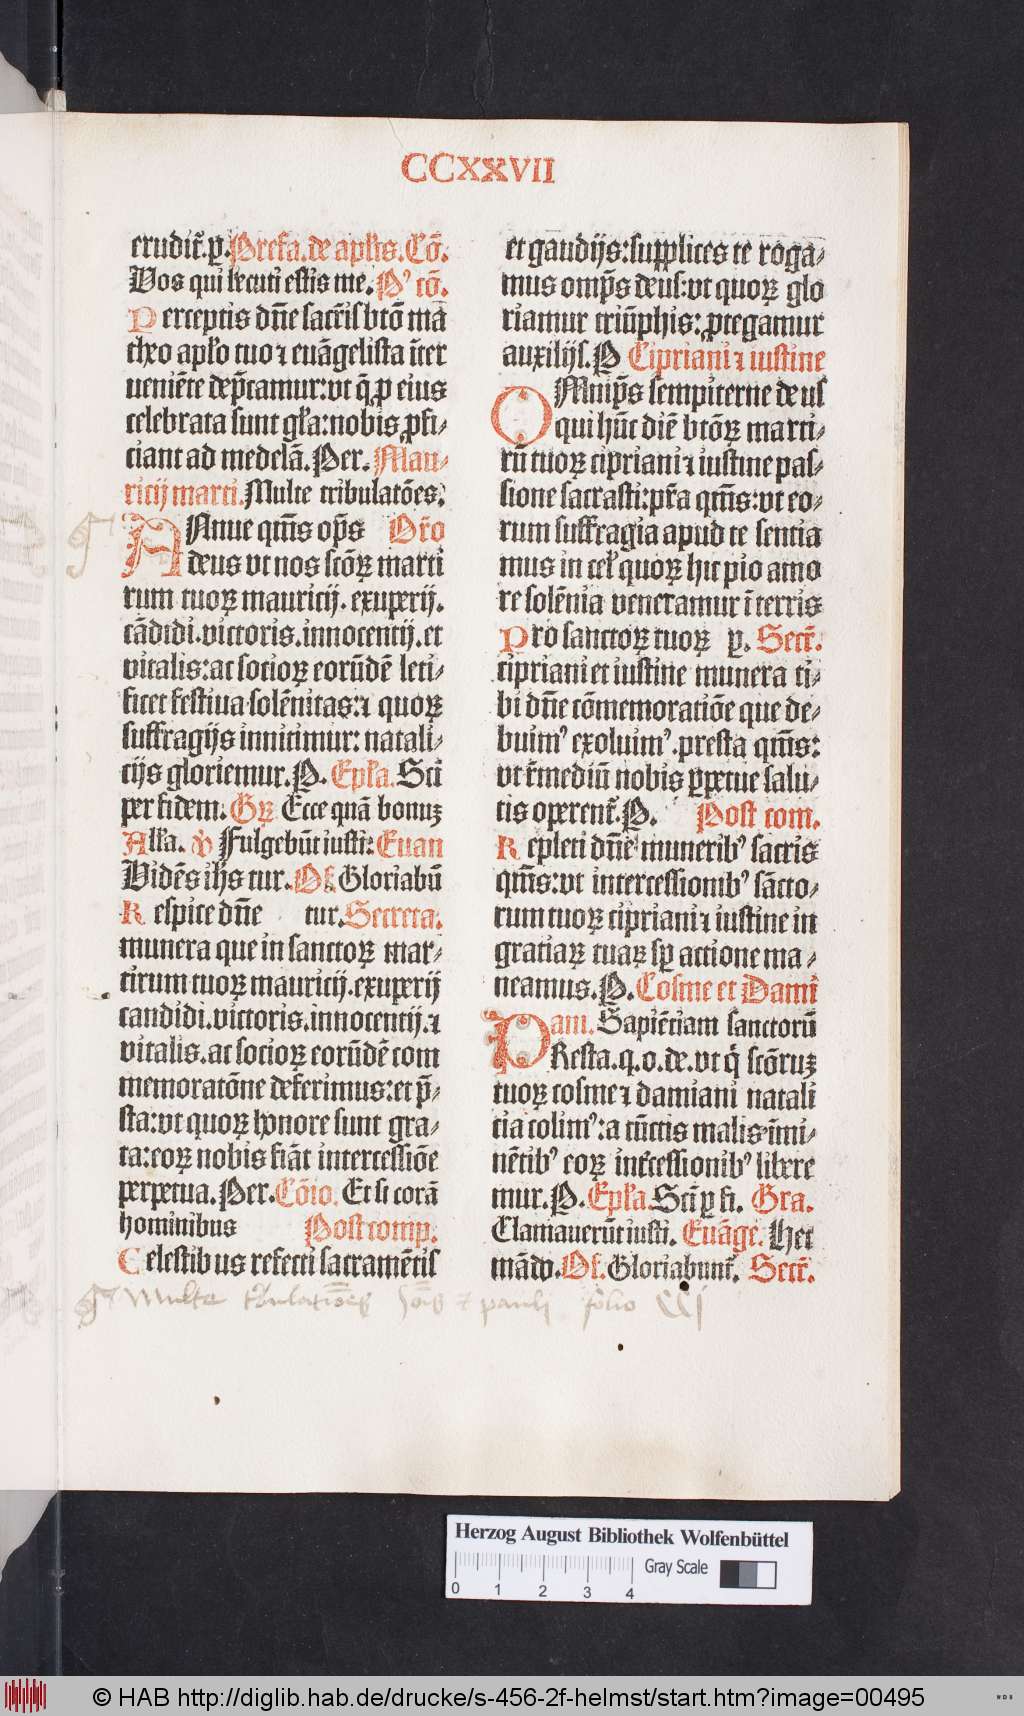 CCXXVII
erudit᷑.ꝑ.Prefa.de apl̄is.Cō.
Vos qui secuti estis me.P᷒ cō.
Perceptis dn̄e sacr̄is btō ma
theo apl̄o tuo ⁊ euāgelista īter
ueniēte dep̄camur:vt q̄ ꝓ eius
celebrata sunt gl̄a:nobis ꝓfi⸗
ciant ad medelā.Per.Mau⸗
ricij marti.Multe tribulatōes.
ANnue qm̄s op̄s Or̄o
deus vt nos scōꝝ marti
rum tuoꝝ mauricij.exuperij.
cādidi.victoris.innocentij.et
vitalis:ac socioꝝ eorūdē leti⸗
ficet festiua solēnitas:⁊ quoꝝ
suffragijs innitimur:natali⸗
cijs gloriemur.P. Epl̄a.Scī
per fidem.Gꝝ Ecce quā bonuꝫ
All̄a. ℣ Fulgebūt iusti:Euan
Vidēs ih̄s tur.Of.Gloriabū
Respice dn̄e tur.Secreta.
munera que in sanctoꝝ mar⸗
tirum tuoꝝ mauricij.exuperij
candidi.victoris.innocentij.⁊
vitalis.ac socioꝝ eorūdē com
memoratōne deferimus:et p̄⸗
sta:vt quoꝝ honore sunt gra⸗
ta:eoꝝ nobis fiāt intercessiōe
perpetua.Per.Cōio.Et si corā
hominibus Post comp.
Celestibus refecti sacramētis
et gaudijs:supplices te roga⸗
mus omp̄s deus:vt quoꝝ glo
riamur triūphis:ꝓtegamur
auxilijs.P Cipriani ⁊ iustine
OMnip̄s sempiterne deus
qui hūc diē btōꝝ marti⸗
rū tuoꝝ cipriani ⁊ iustine pas⸗
sione sacrasti:p̄sta qm̄s:vt eo⸗
rum suffragia apud te sentia
mus in cel̄ quoꝝ hic pio amo
re solēnia veneramur ī terris
Pro sanctoꝝ tuoꝝ ꝑ. Secr̄.
cipriani et iustine munera ti⸗
bi dn̄e cōmemoratiōe que de⸗
buim᷒ exoluim᷒.presta qm̄s:
vt r̄mediū nobis ꝑpetue salu⸗
tis operent᷑.P. Post com.
Repleti dn̄e munerib᷒ sacris
qm̄s:vt intercessionib᷒ sācto⸗
rum tuoꝝ cipriani ⁊ iustine in
gratiaꝝ tuaꝝ sꝑ actione ma⸗
neamus.P.Cosme et Dami
ani.Sapiētiam sanctorū
PResta.q.o.de.vt q̇ scōruꝫ
tuoꝝ cosme ⁊ damiani natali
tia colim᷒:a cūctis malis īmi⸗
nētib᷒ eoꝝ int᷑cessionib᷒ libere
mur.P.Epl̄a.Scī ꝑ fi. Gra.
Clamauerūt iusti. Euāge.Hec
mādo.Of.Gloriabunt᷑. Secr̄.
Multe tribulationes Jois et pauli folio CCI
Herzog August Bibliothek Wolfenbüttel
Gray Scale
0 1 2 3 4
© HAB http://diglib.hab.de/drucke/s-456-2f-helmst/start.htm?image=00495